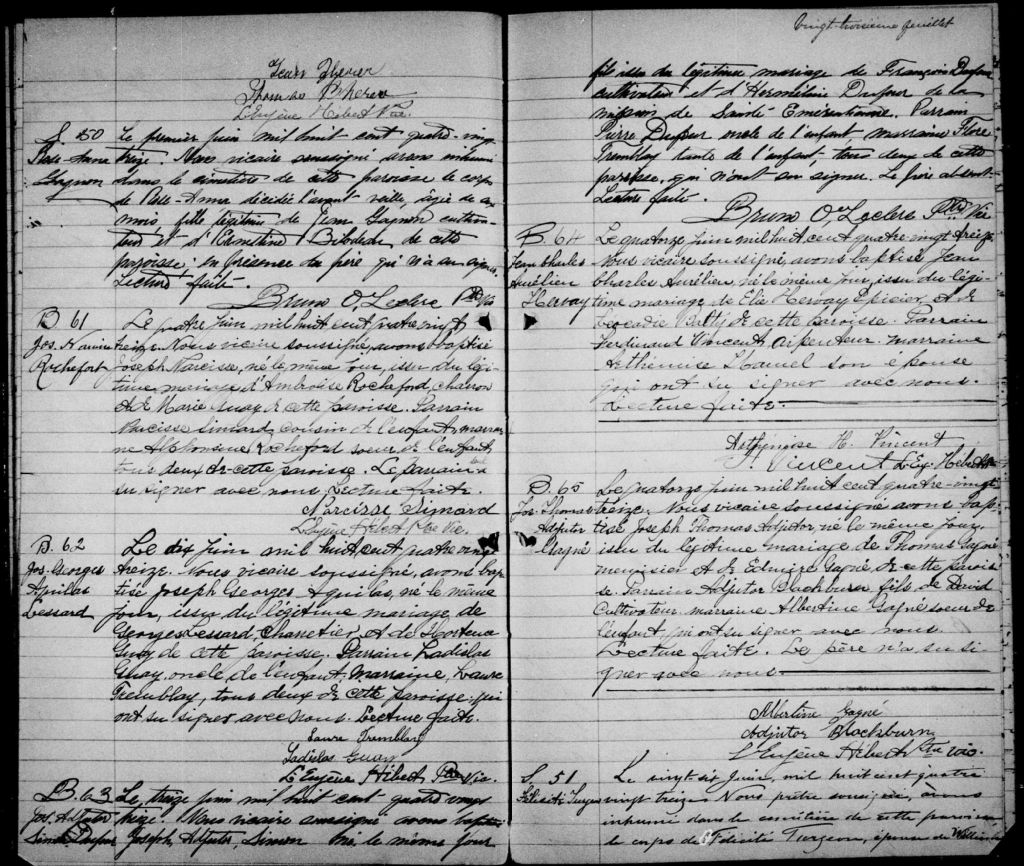 Jean
Thomas
L. Eugène Hébert Vic.
S. 50
Rose-Anna
Gagnon
Le premier juin mil huit cent quatre-vingt
treize. Nous vicaire soussigné avons inhumé
dans le cimetière de cette paroisse le corps
de Rose-Anna décédée l'avant veille, âgée de
mois, fille légitime de Jean Gagnon cultiva-
teur et d'Ernestine Bilodeau de cette
paroisse: en présence du père qui n'a su signer
Lecture faite.
Bruno O'Leclerc Ptre Vic
B 61
Jos. Narcisse
Rochefort
Le quatre juin mil huit cent quatre vingt
treize. Nous vicaire soussigné, avons baptisé
Joseph Narcisse, né le même jour, issu du légi-
time mariage d'Ambroise Rocheford, charron
et de Marie Guay de cette paroisse. Parrain
Narcisse Simard, cousin de l'enfant, marrai-
ne Alphonsine Rocheford soeur de l'enfant
tous deux de cette paroisse. Le parrain a
su signer avec nous. Lecture faite.
Narcisse Simard
L. Eugène Hébert Ptre Vic.
B. 62
Jos. Georges
Aquilas
Lessard
Le dix juin mil huit cent quatre vingt
treize. Nous vicaire soussigné, avons bap
tisé Joseph Georges Aquilas, né le même
jour, issu du légitime mariage de
Georges Lessard, Charretier, et de Hortense
Guay de cette paroisse. Parrain Ladislas
Guay, oncle de l'enfant. Marraine, Laure
Tremblay, tous deux de cette paroisse qui
ont su signer avec nous. Lecture faite.
Laure Tremblay
Ladislas Guay
L. Eugène Hébert Ptre Vic.
B. 63
Jos. Adjutor
Simon Dufour
Le treize juin mil huit cent quatre vingt
treize. Nous vicaire soussigné avons baptisé
Joseph, Adjutor, Simon né le même jour
Vingt-troisième feuillet
fils issu du légitime mariage de François Dufour
cultivateur et d'Herméline Dufour de la
mission de Sainte Emérentienne. Parrain
Pierre Dufour oncle de l'enfant marraine Flore
Tremblay tante de l'enfant tous deux de cette
paroisse, qui n'ont su signer. Le père absent.
Lecture faite.
Bruno O'Leclerc Ptre Vic
B. 64
Jean Charles
Aurélien
Hervay
Le quatorze juin mil huit cent quatre-vingt treize
Nous vicaire soussigné, avons baptisé Jean
Charles Aurélien, né le même jour, issu du légi-
time mariage de Elie Hervay Epicier, et de
Léocadie de cette paroisse. Parrain
Ferdinand Vincent arpenteur. marraine
Arthémise Hamel son épouse
qui ont su signer avec nous.
Lecture faite.
Arthémise H. Vincent
Vincent L. Eug. Hébert
B. 65
Jos. Thomas
Adjutor
Gagné
Le quatorze juin mil huit cent quatre-vingt
treize. Nous vicaire soussigné avons bap-
tisé Joseph Thomas Adjutor né le même jour
issu du légitime mariage de Thomas Gagné
menuisier et de Edwige Gagné de cette parois
se. Parrain Adjutor Blackburn fils de David
Cultivateur, marraine Albertine Gagné soeur de
l'enfant, qui ont su signer avec nous.
Lecture faite. Le père n'a su si-
gner avec nous.
Albertine Gagné
Adjutor Blackburn
L. Eugène Hébert Ptre vic.
S. 51
Félicité Turgeon
Le vingt six Juin, mil huit cent quatre
vingt treize Nous prêtre soussigné, avons
inhumé dans le cimetière de cette paroisse
le corps de Félicité Turgeon, épouse de William